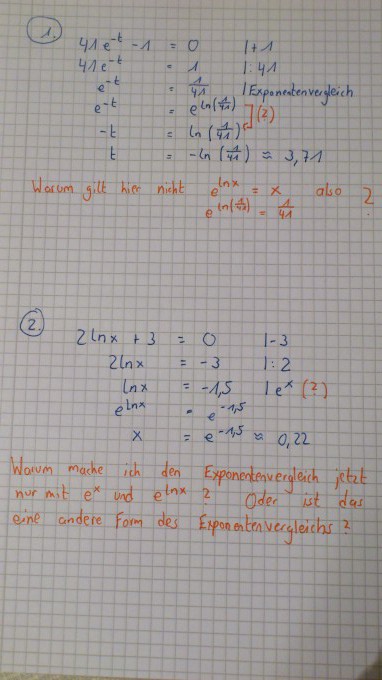 1.
41e^-t - 1 = 0 |+1
41e^-t = 1 |:41
e^-t = 1/41 |Exponentenvergleich
e^-t = e^ln(1/41)
-t = ln(1/41) (?)
t = -ln(1/41) ≈ 3,71
Warum gilt hier nicht e^lnx = x also ?
e^ln(1/41) = 1/41
2.
2lnx + 3 = 0 |-3
2lnx = -3 |:2
lnx = -1,5 |e^x (?)
e^lnx = e^-1,5
x = e^-1,5 ≈ 0,22
Warum mache ich den Exponentenvergleich jetzt
nur mit e^x und e^lnx ? Oder ist das
eine andere Form des Exponentenvergleichs?